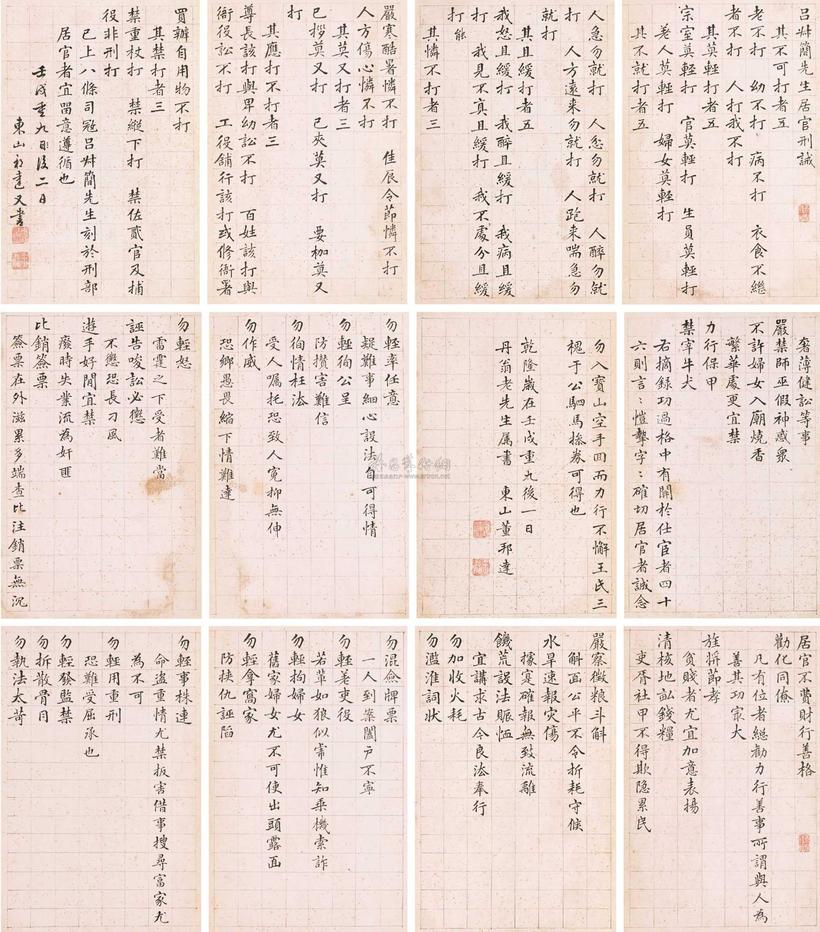 呂叔簡先生居官刑誡
其不可打者五
老不打 幼不打 病不打 衣食不繼
者不打 人打我不打
其莫輕打者五
宗室莫輕打 官莫輕打 生員莫輕打
差人莫輕打 婦女莫輕打
其不就打者五
人急勿就打 人忿勿就打 人醉勿就
打 人方遠来勿就打 人跑来喘急勿
就打
其且緩打者五
我怒且緩打 我醉且緩打 我病且緩
打 我見不真且緩打 我不處分且緩
打 能
其憐不打者三
嚴寒酷暑憐不打 佳辰令節憐不打
人方傷心憐不打
其莫又打者三
已拶莫又打 已夾莫又打 要枷莫又
打
其應打不打者三
尊長該打與卑幼訟不打 百姓該打與
衙役訟不打 工役鋪行該打或修衙署
買辦自用物不打
其禁打者三
禁重杖打 禁縱下打 禁佐貳官及捕
役非刑打
已上八條司寇呂叔簡先生刻於刑部
居官者宜留意遵循也
壬戌重九日後二日
東山邦達又書
奢薄健訟等事
嚴禁師巫假神惑眾
不許婦女入廟燒香
繁華處更宜禁
力行保甲
禁宰牛犬
右摘録功過格中有關於仕宦者四十
六則言言愷摯字字確切居官者誠念
勿入寶山空手回而力行不懈王氏三
槐于公駟馬操券可得也
乾隆嵗在壬戌重九後一日
丹翁老先生属書 東山董邦達
勿輕率任意
疑難事細心設法自可得情
勿輕徇公呈
防攢害難信
勿徇情枉法
受人嘱托恐致人寃抑無伸
勿作威
恐鄉愚畏縮下情難達
勿輕怒
雷霆之下受者難當
誣告唆訟必懲
不懲恐長刁風
遊手好閒宜禁
廢時失業流為奸匪
比銷簽票
簽票在外滋累多端查比注銷票無沉
居官不費財行善格
勸化同僚
凡有位者總勸力行善事所謂與人為
善其功寂大
旌奬節孝
貧賤者尤宜加意表揚
清核地畝錢糧
吏胥社甲不得欺隐累民
嚴察徵粮斗斛
斛面公平不令折耗守候
水旱速報灾傷
據寔確報無致流離
饑荒設法賑恤
宜講求古今良法奉行
勿加收火耗
勿濫准詞狀
勿混佥牌票
一人到案闔户不寧
勿輕差吏役
若輩如狼似虎惟知乗機索詐
勿輕拘婦女
舊家婦女尤不可使出頭露面
勿輕拿窩家
防挟仇誣䧟
勿輕事株連
命盗重情尤禁扳害借事搜尋富家尤
為不可
勿輕用重刑
恐難受屈承也
勿輕發監禁
勿拆散骨肉
勿執法太苛